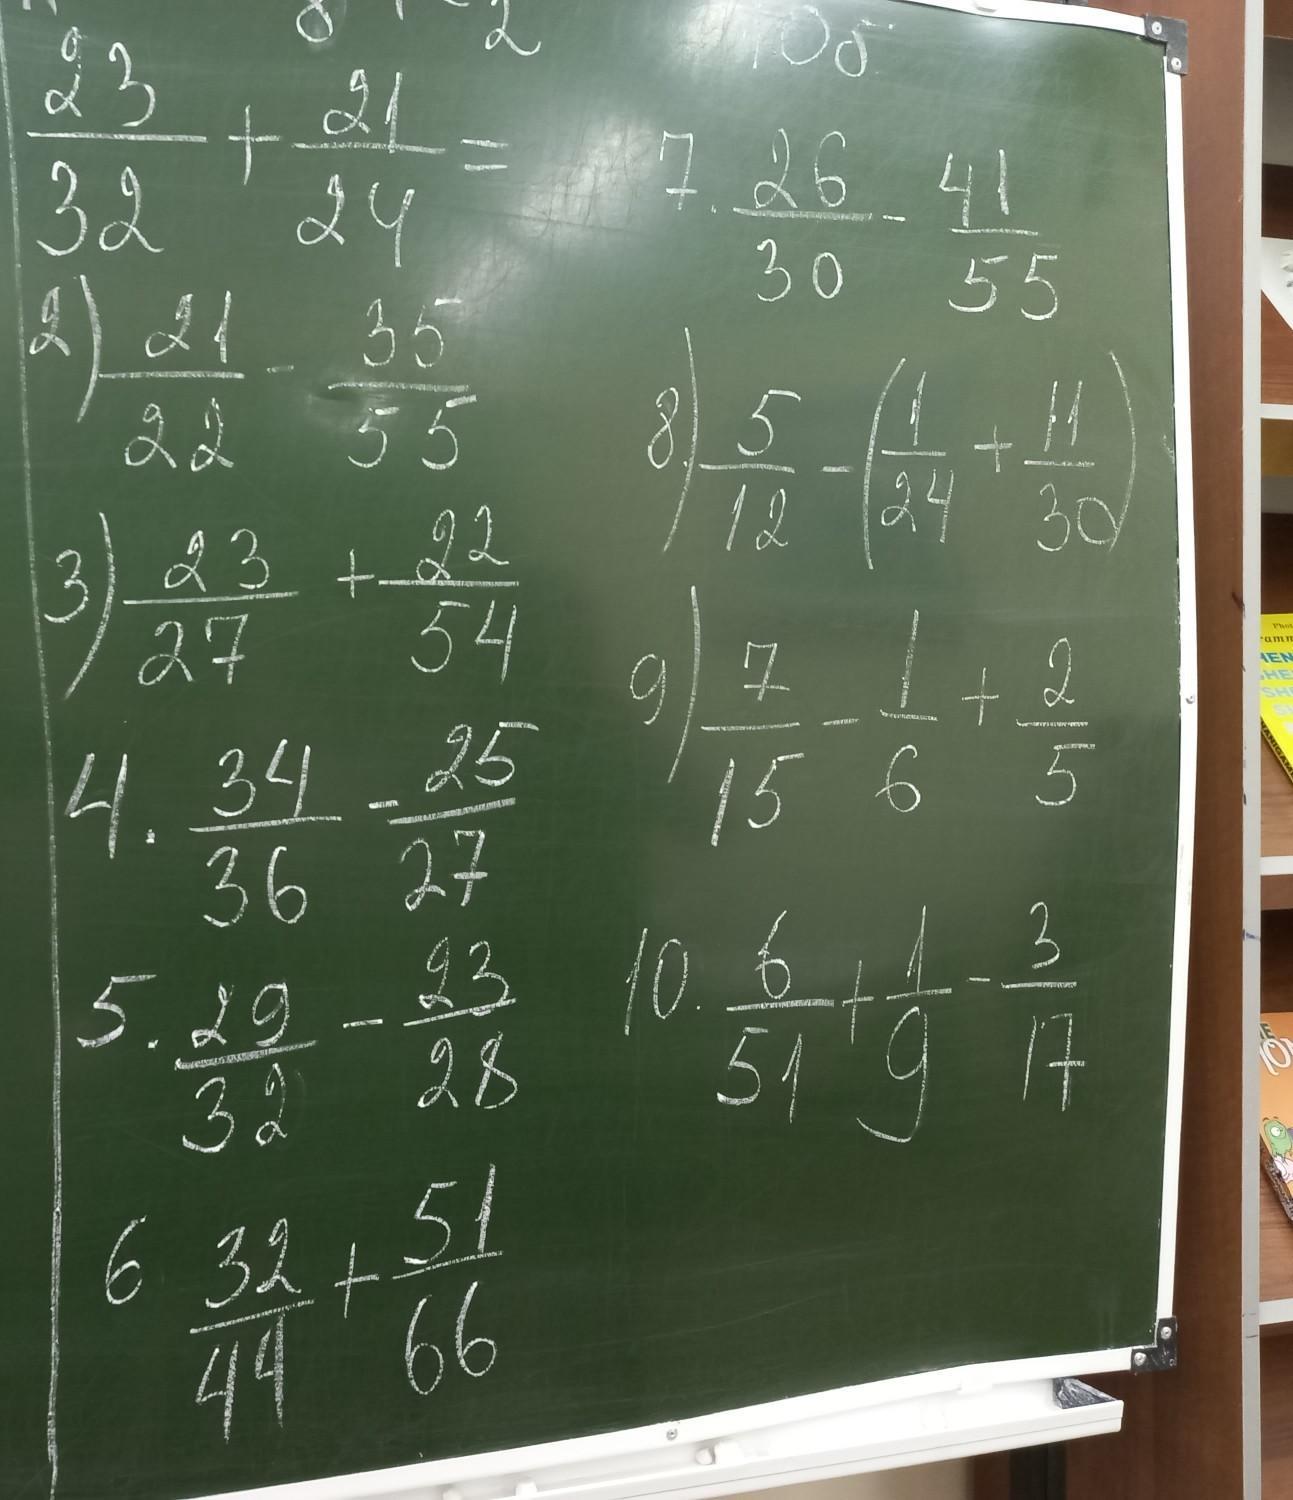 23/32 + 21/24 =
2) 21/22 - 35/55
3) 23/27 + 22/54
4. 34/36 - 25/27
5. 29/32 - 23/28
6 32/44 + 51/66
7. 26/30 - 41/55
8.) 5/12 - (1/24 + 11/30)
9) 7/15 - 1/6 + 2/5
10. 6/51 + 1/9 - 3/17